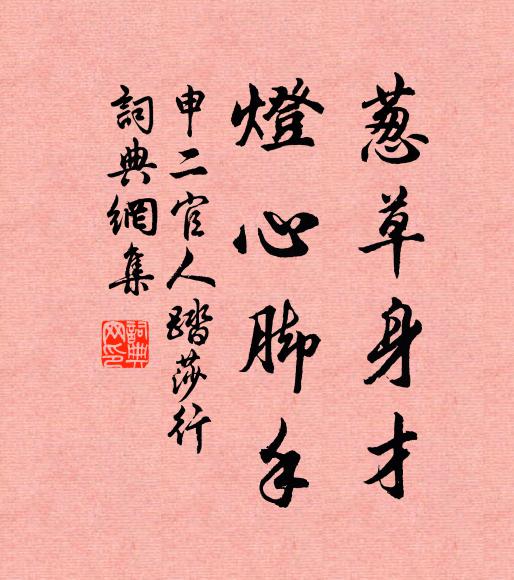 葱草身才
燈心脚手
申二官人踏莎行
詞典網集
詞典網印